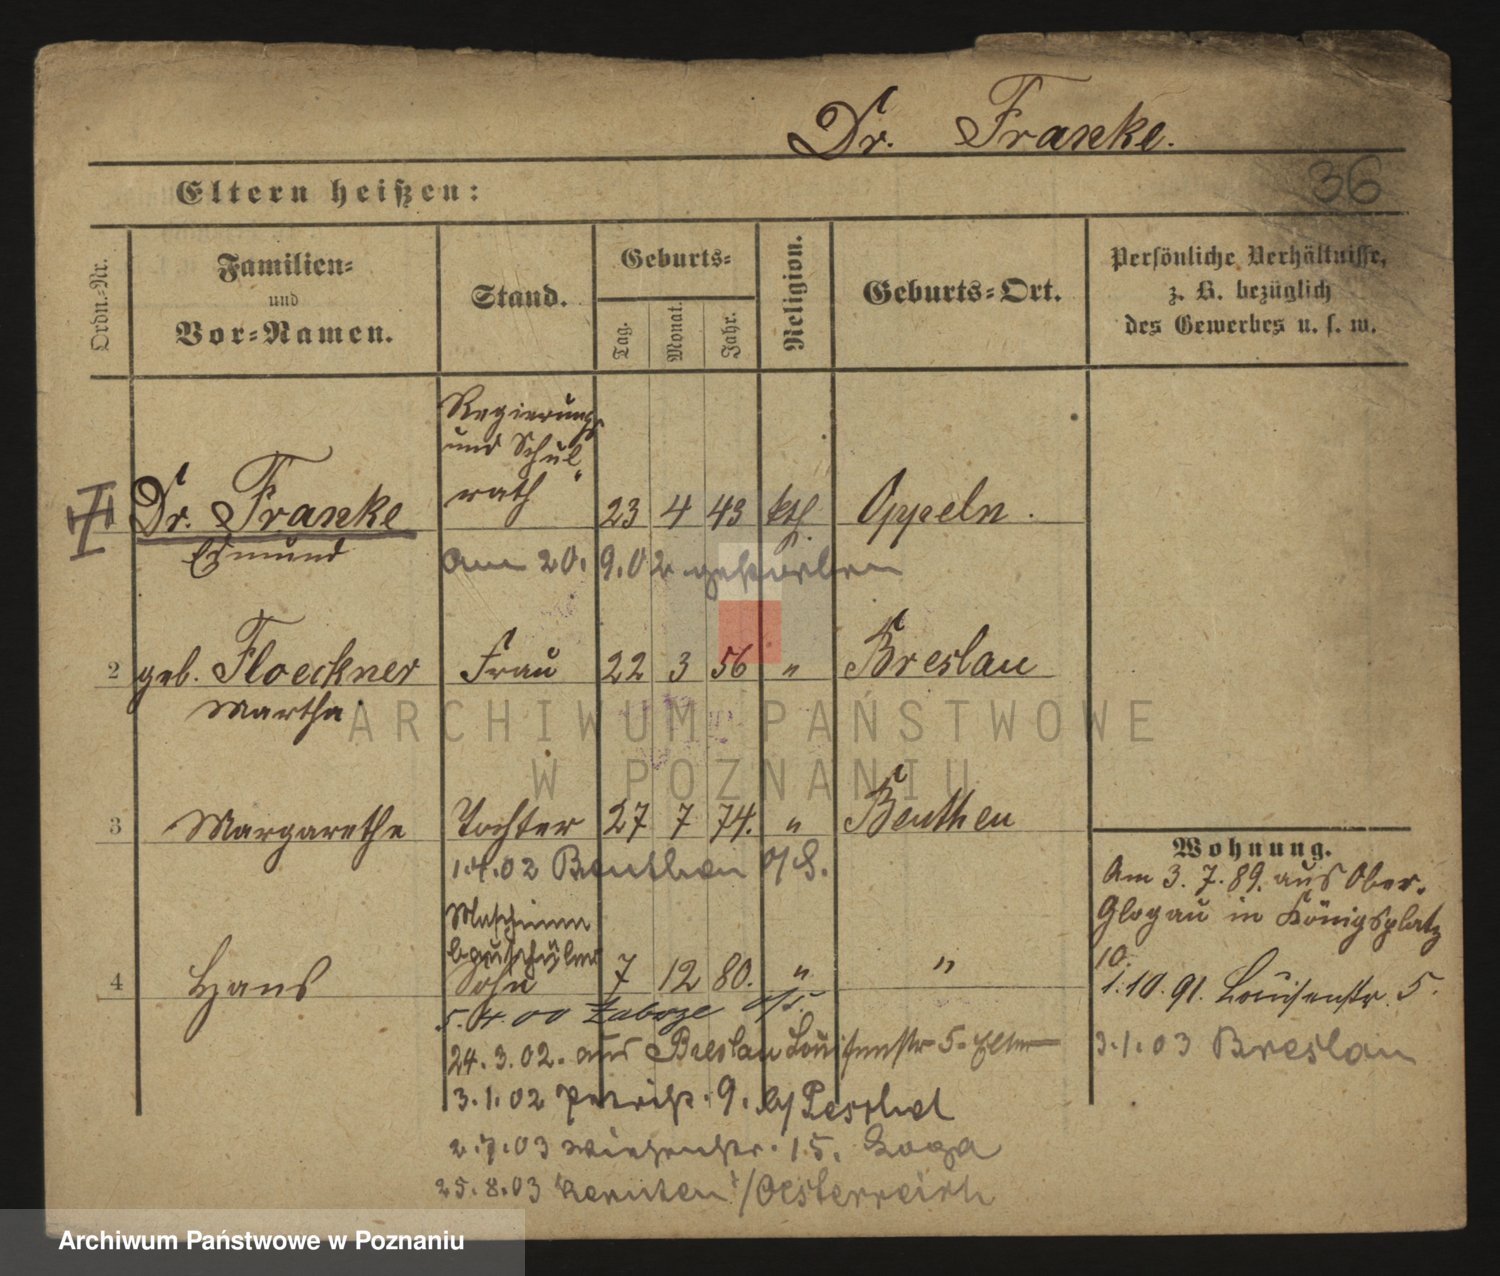 Dr. Franke.
36
Eltern heißen:
Ordn.-Nr.
Familien-
und
Vor-Namen.
Stand.
Geburts-
Tag.
Monat.
Jahr.
Religion.
Geburts-Ort.
Persönliche Verhältnisse,
z. B. bezüglich
des Gewerbes u. s. w.
Regierungs
und Schul
rath
Dr. Franke 23 4 43 kth. Oppeln.
Edmund
am 20. 9. 02 gestorben
2 geb. Floeckner Frau 22 3 56 " Breslau
Martha
ARCHIWUM PAŃSTWOWE
W POZNANIU
3 Margarethe Tochter 27 7 74. " Beuthen
1.4.02 Beuthen o/S.
Maschinen
bauschüler
4 Hans Sohn 7 12 80. " "
5. 4. 00 Zaborze o/S.
24. 3. 02. aus Breslau Louisenstr 5. Eltern
3.1.02 9. b/
2.7.03 Wiesenstr. 15.
25.8.03 /Oesterreich
Wohnung.
Am 3. 7. 89. aus Ober-
Glogau in Königsplatz
10.
1. 10. 91. Louisenstr. 5.
3.1.03 Breslau
Archiwum Państwowe w Poznaniu